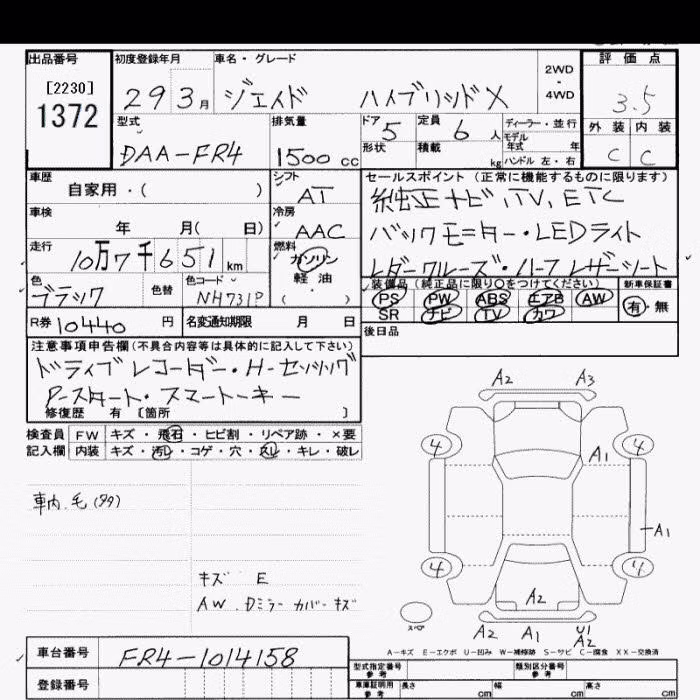 出品番号
[2230]
1372
初度登録年月
29 3月
車名・グレード
ジェイド ハイブリッド X
2WD
・
4WD
評価点
3.5
型式
DAA-FR4
排気量
1500 cc
ドア 5
形状
定員 6 人
積載 kg
ディーラー・並行
モデル年式 年
ハンドル 左・右
外装 内装
C C
車歴
自家用・( )
シフト
AT
セールスポイント (正常に機能するものに限ります)
純正ナビ,TV,ETC
バックモニター・LEDライト
レダークルーズ・ハーフレザーシート
車検
年 月( 日)
冷房
AAC
走行
10万7千651 km
燃料
ガソリン
軽油
( ・ )
色
ブラック
色替
色コード
NH731P
装備品 (純正品に限り○をつけてください)
PS PW ABS エアB AW
SR ナビ TV カワ
新車保証書
有・無
R券 10440 円
名変通知期限 月 日
後日品
注意事項申告欄(不具合内容等は具体的に記入して下さい)
ドライブレコーダー・H-センシング
P-スタート・スマートキー
修復歴 有 〔箇所 〕
検査員 FW キズ・飛石・ヒビ割・リペア跡・×要
記入欄 内装 キズ・汚レ・コゲ・穴・スレ・キレ・破レ
車内 毛(タタ)
キズ E
AW.Dミラーカバーキズ
A2 A3
4 4
A1
A1
4 4
A2
スペア
A2 A1 U1
A2
A-キズ E-エクボ U-凹み W-補修跡 S-サビ C-腐食 XX-交換済
車台番号
FR4-1014158
登録番号
型式指定番号
参考
類別区分番号
参考
車庫証明用
参考
長さ cm 幅 cm 高さ cm